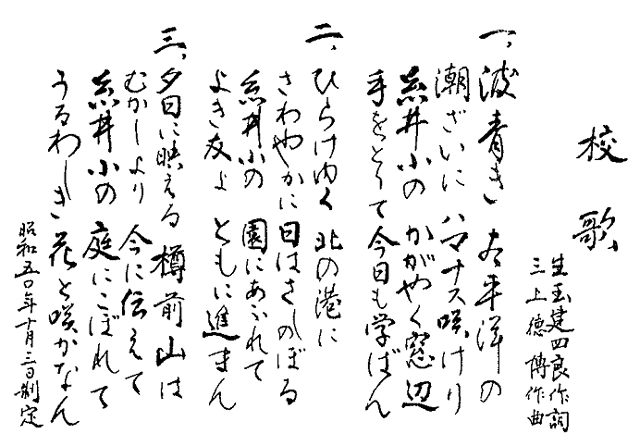 校歌
生玉建四良作詞
三上徳傅作曲
一、波青き 太平洋の
潮ざいに ハマナス咲けり
糸井小の かがやく窓辺
手をとりて 今日も学ばん
二、ひらけゆく 北の港に
さわやかに 日はさしのぼる
糸井小の 園にあふれて
よき友よ ともに進まん
三、夕日に映える 樽前山は
むかしより 今に伝えて
糸井小の 庭にこぼれて
うるわしき 花と咲かなん
昭和五〇年十月三日制定